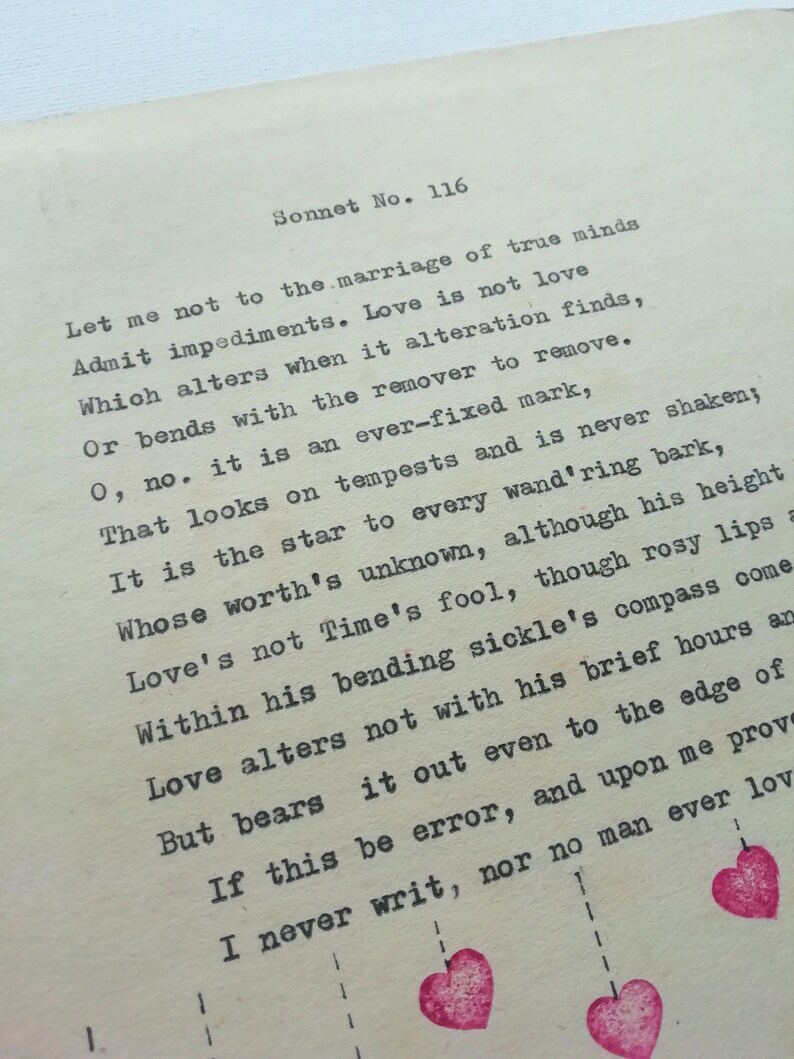 Sonnet No. 116
Let me not to the marriage of true minds
Admit impediments. Love is not love
Which alters when it alteration finds,
Or bends with the remover to remove.
O, no. it is an ever-fixed mark,
That looks on tempests and is never shaken;
It is the star to every wand'ring bark,
Whose worth's unknown, although his height
Love's not Time's fool, though rosy lips a
Within his bending sickle's compass come
Love alters not with his brief hours an
But bears it out even to the edge of
If this be error, and upon me prov
I never writ, nor no man ever lov